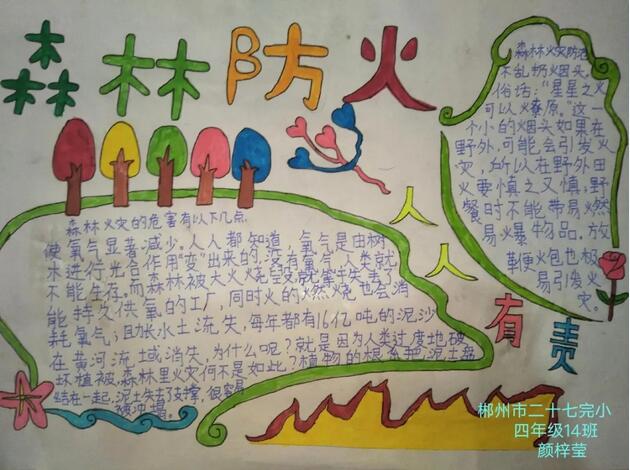 森林防火
人人有责
森林火灾的危害有以下几点
使氧气显著减少,人人都知道,氧气是由树
木进行光合作用"变"出来的,没有氧气,人类就
不能生存,而森林被大火烧毁,就等于失去了
能持久供氧的工厂,同时火的燃烧也会消
耗氧气;助长水土流失,每年都有16亿吨的泥沙
在黄河流域消失,为什么呢?就是因为人类过度地破
坏植被,森林里火灾何不是如此?植物的根系把泥土
结在一起,泥土失去了支撑,很容易
被冲塌。
森林火灾防范
不乱扔烟头。
俗话:"星星之火
可以燎原。"这一
个小的烟头如果在
野外,可能会引发火
灾,所以在野外田
火要慎之又慎;野
餐时不能带易燃
易爆物品。放
鞭便火包也极
易引发火
灾。
郴州市二十七完小
四年级14班
颜梓莹